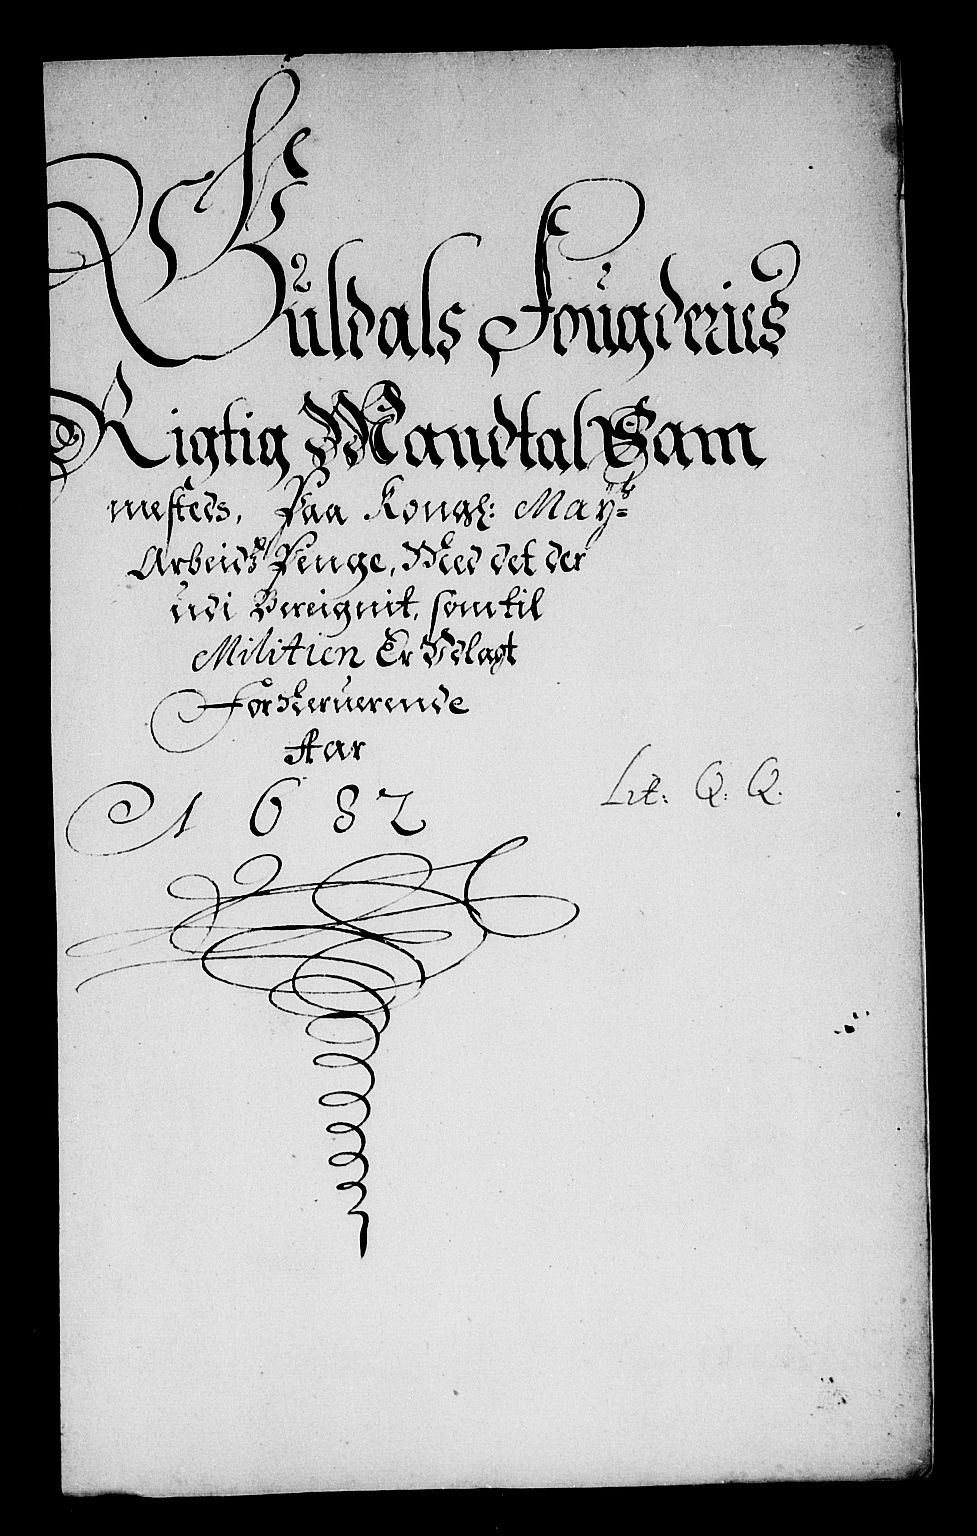 Guldals Fougderies
Rigtig Mandtal Sam
mesteds, Paa Kongl: Mayts
Arbeids Penge, Med det der
udi Bereignit, som til
Militien Er Udlagt
For Nerverende
Aar
1682
Lit: Q: Q.